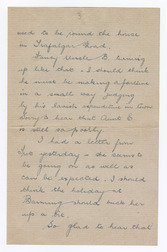 3
used to be round the house
in Trafalgar Road.
Fancy Uncle B having
up like that - I should think
he must be making a fortune
in a small way judging
by his
sorry to hear that Aunt E.
is still so poorly.
I had a letter from
Dot yesterday - she seems to
be going on as well as
can be expected. I should
think the holiday at
should buck her
up a bit.
So glad to hear that